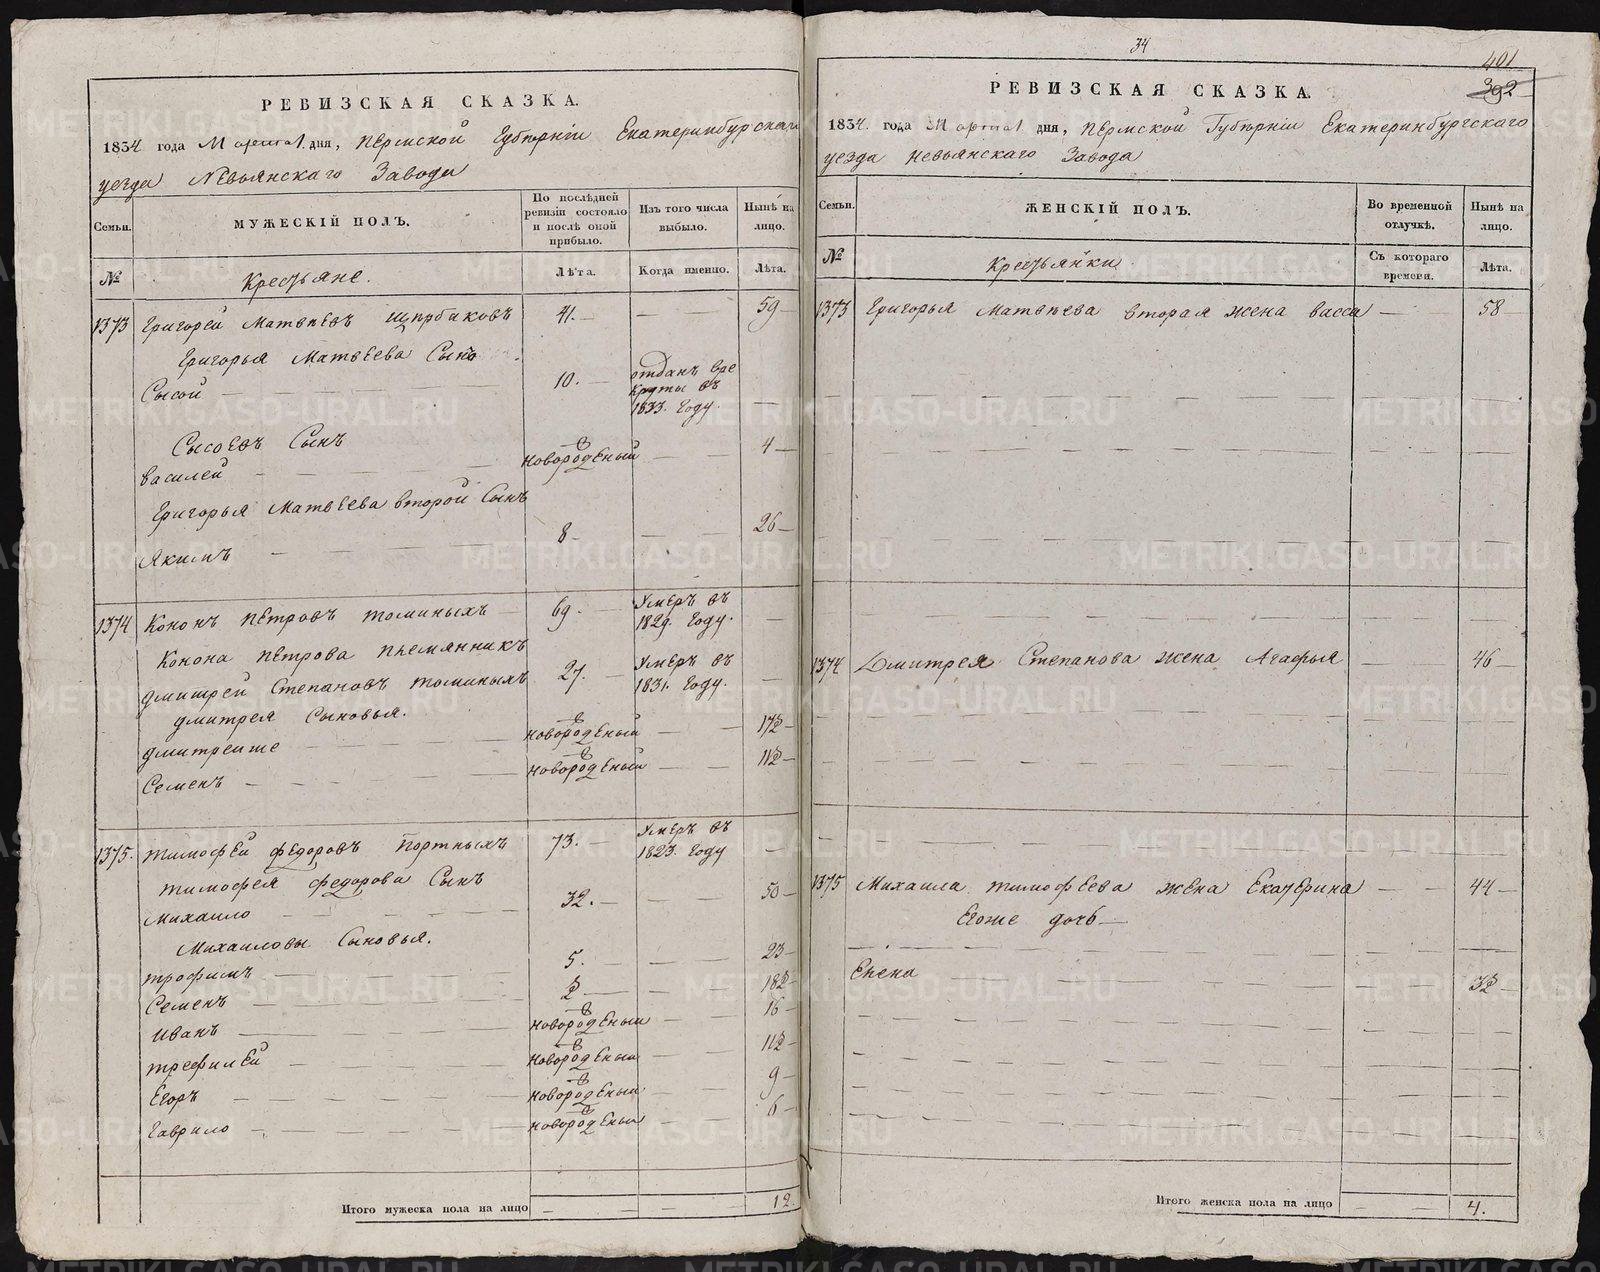 РЕВИЗСКАЯ СКАЗКА.
1834 года Марта 1 дня, Пермской Губѣрніи Екатеринбургскаго
уезда Невьянскаго Завода
Семьи.
МУЖЕСКІЙ ПОЛЪ.
По послѣдней ревизіи состояло и послѣ оной прибыло.
Изъ того числа выбыло.
Нынѣ на лицо.
№
Крестьяне.
Лѣта.
Когда именно.
Лѣта.
1373 Григорей Матвѣевъ 41. — — 59
Григорья Матвеева Сынъ
Сысой — 10. — отданъ вре
круты въ
1833. Году. —
Сысоевъ Сынъ
Василей — новорожденый — 4
Григорья Матвеева второй Сынъ
Якимъ — 8 — — 26
1374 Кононъ Петровъ Томиныхъ — 69. — Умеръ въ
1829. Году. —
Конона Петрова племянникъ
Дмитрей Степановъ Томиныхъ 27. — Умеръ въ
1831. Году. —
Дмитрея Сыновья.
Дмитрейже — новорожденый — 17½
Семенъ — новорожденый — 11½
1375. Тимофей Федоровъ Портныхъ 73. — Умеръ въ
1823. Году —
Тимофея Федорова Сынъ
Михаило — 32. — — 50
Михаиловы Сыновья.
Трофимъ — 5. — — 23
Семенъ — ½ — — 18½
Иванъ — новорожденый — 16
Трефилей — новорожденый — 11½
Егоръ — новорожденый — 9
Гаврило — новорожденый — 6
Итого мужеска пола на лицо — — 12.
34
401
392
РЕВИЗСКАЯ СКАЗКА.
1834. года Марта 1 дня, Пермской Губѣрніи Екатеринбургскаго
уезда Невьянскаго Завода
Семьи.
ЖЕНСКІЙ ПОЛЪ.
Во временной отлучкѣ.
Нынѣ на лицо.
№
Крестьянки
Съ котораго времени.
Лѣта.
1373 Григорья Матвѣева вторая жена Васса — 58
1374 Дмитрея Степанова жена Агафья — 46
1375 Михаила Тимофеева жена Екатерина — 44
Егоже дочь —
Елена — 3½
Итого женска пола на лицо — — 4.
METRIKI.GASO-URAL.RU